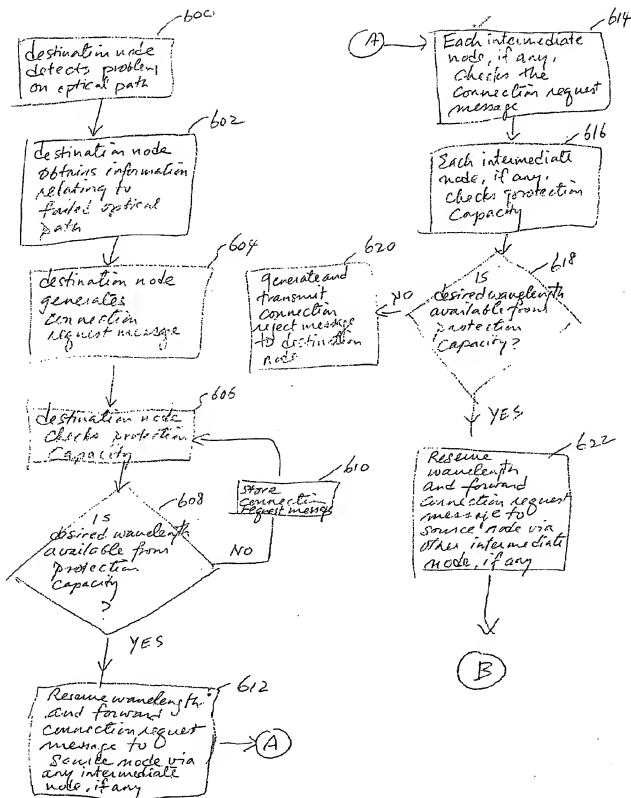 600
destination node
detects problem
on optical path
602
destination node
obtains information
relating to
failed optical
path
604
destination node
generates
connection
request message
606
destination node
checks protection
capacity
608
is
desired wavelength
available from
protection
capacity
?
NO
610
store
connection
request message
YES
612
Reserve wavelength
and forward
connection request
message to
source node via
any intermediate
node, if any
A
A
614
Each intermediate
node, if any,
checks the
connection request
message
616
Each intermediate
node, if any,
checks protection
capacity
618
IS
desired wavelength
available from
protection
capacity?
NO
620
generate and
transmit
connection
reject message
to destination
node
YES
622
Reserve
wavelength
and forward
connection request
message to
source node via
other intermediate
node, if any
B